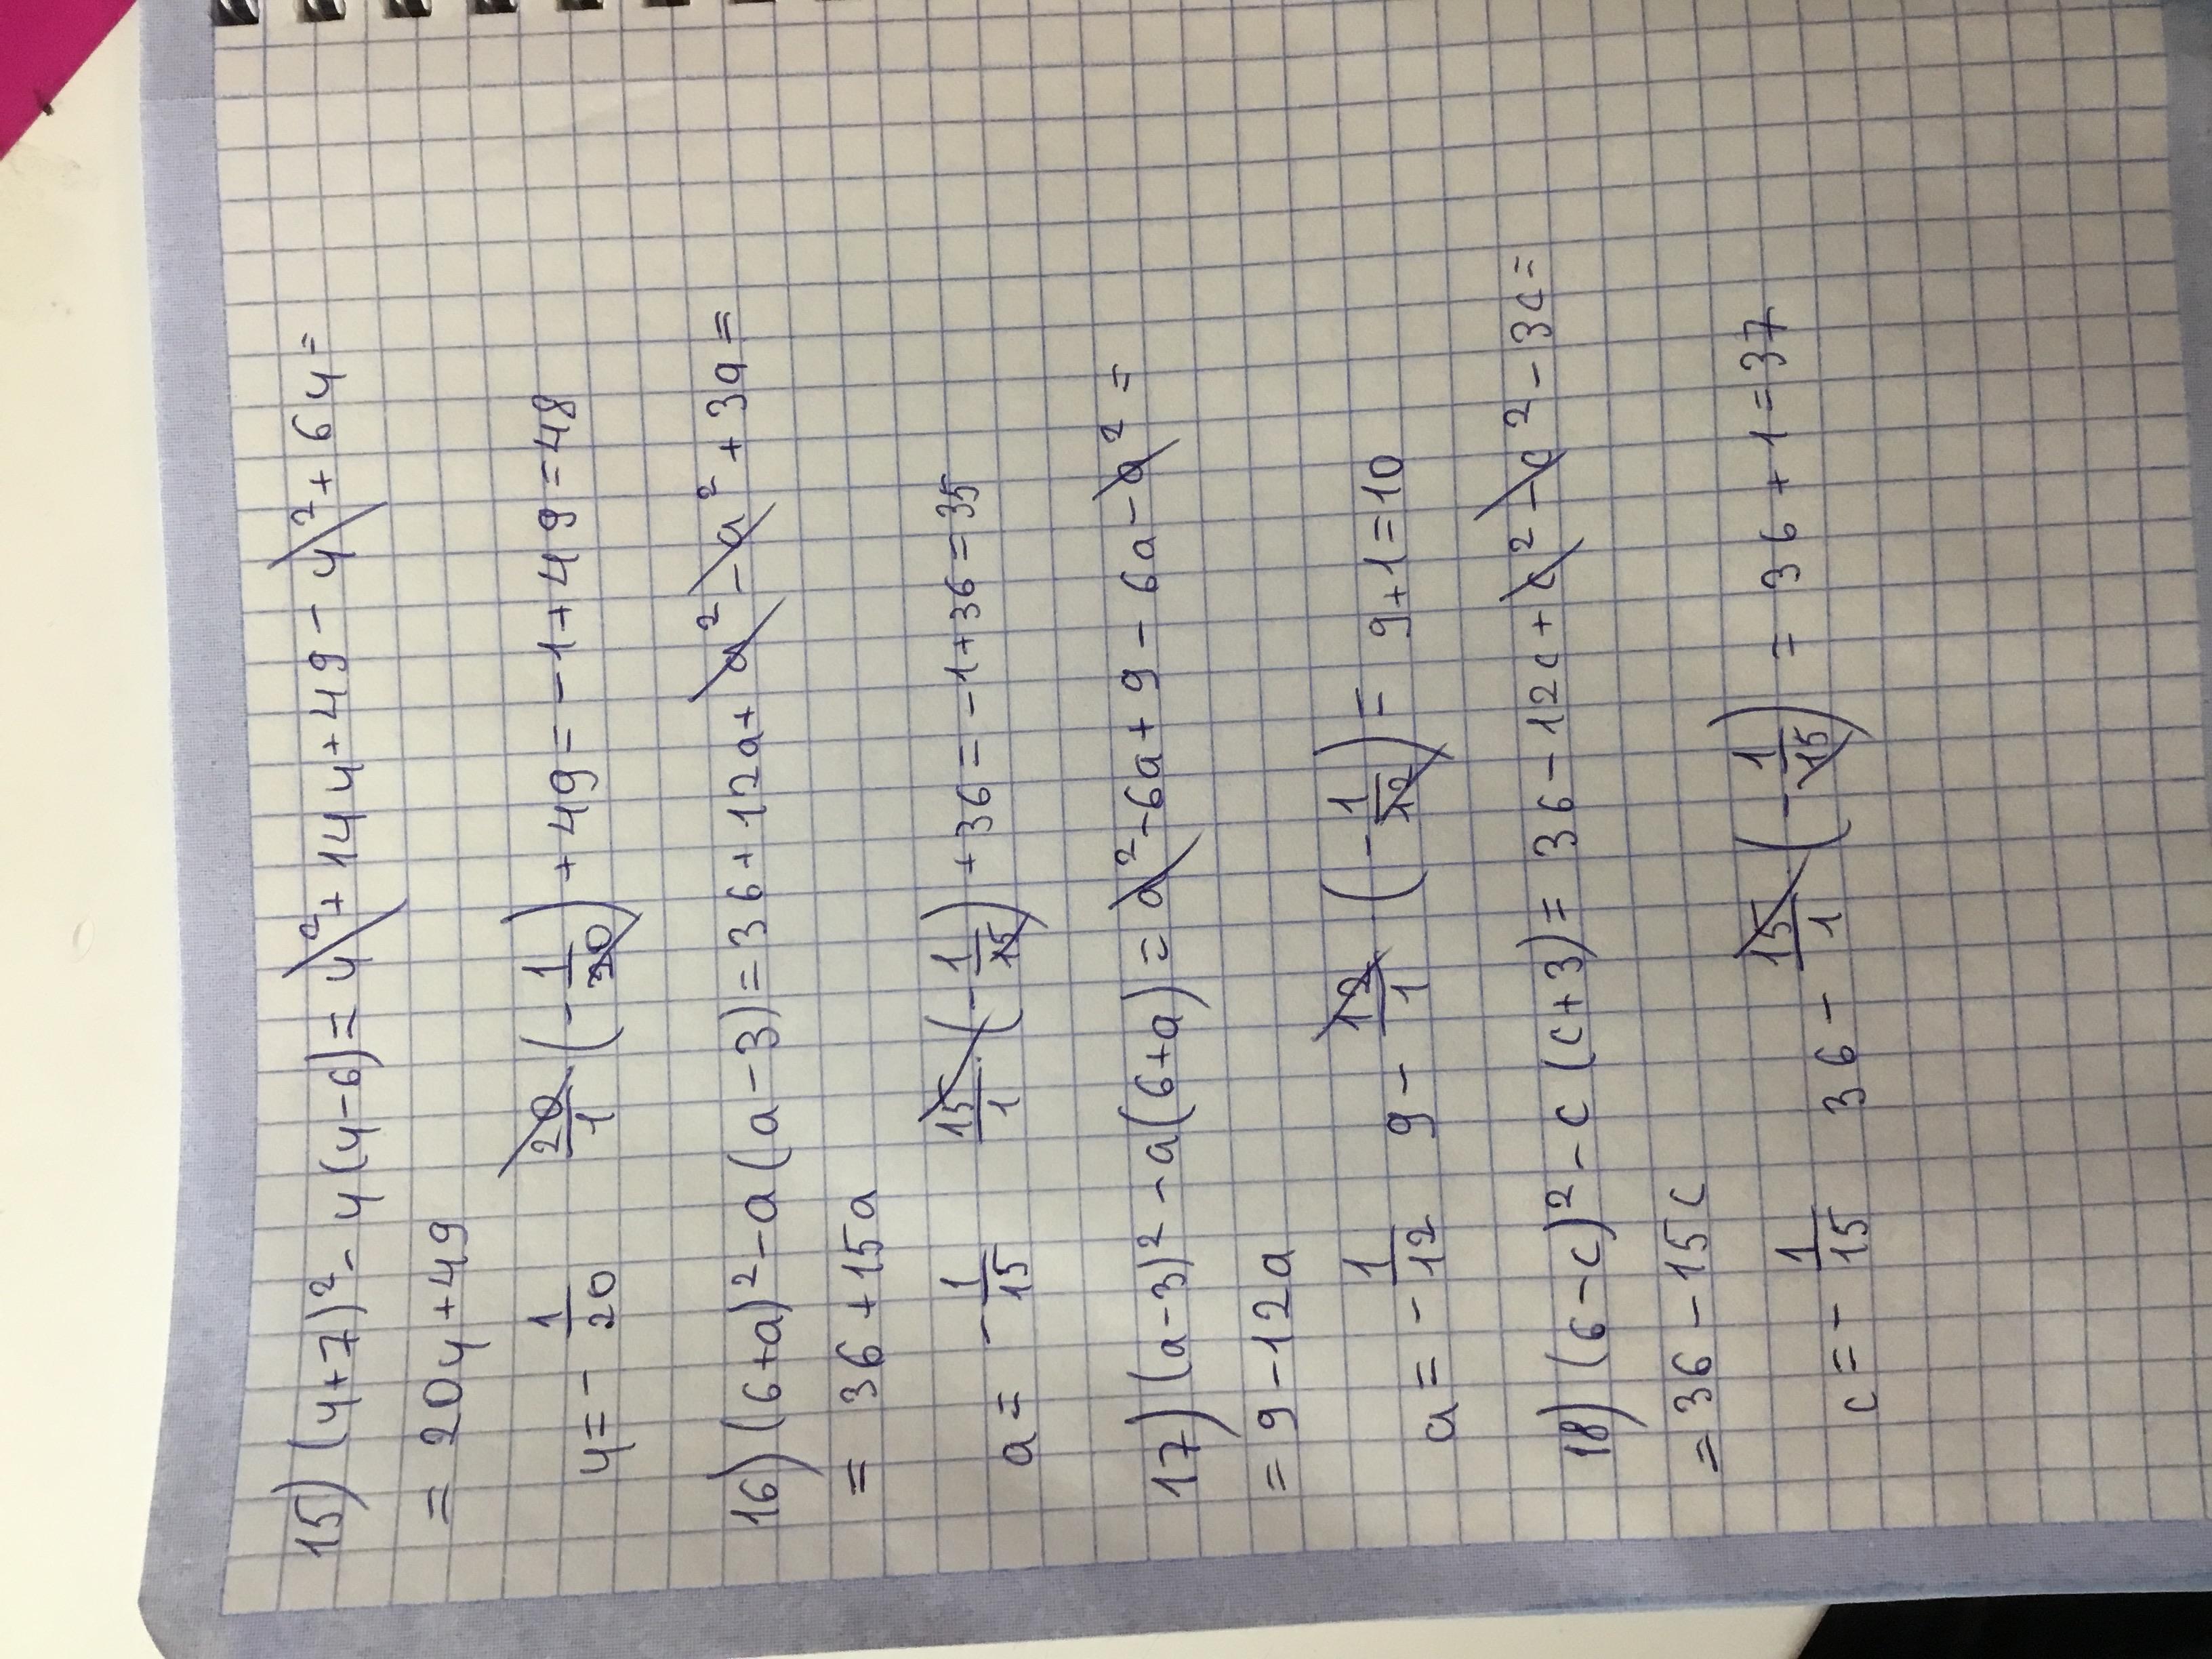 15) (y+7)² - y(y-6) = y² + 14y + 49 - y² + 6y =
= 20y + 49
y = - 1/20   20/1 (- 1/20) + 49 = -1 + 49 = 48
16) (6+a)² - a(a-3) = 36 + 12a + a² - a² + 3a =
= 36 + 15a
a = - 1/15   15/1 · (- 1/15) + 36 = -1 + 36 = 35
17) (a-3)² - a(6+a) = a² - 6a + 9 - 6a - a² =
= 9 - 12a
a = - 1/12   9 - 12/1 (- 1/12) = 9 + 1 = 10
18) (6-c)² - c(c+3) = 36 - 12c + c² - c² - 3c =
= 36 - 15c
c = - 1/15   36 - 15/1 (- 1/15) = 36 + 1 = 37